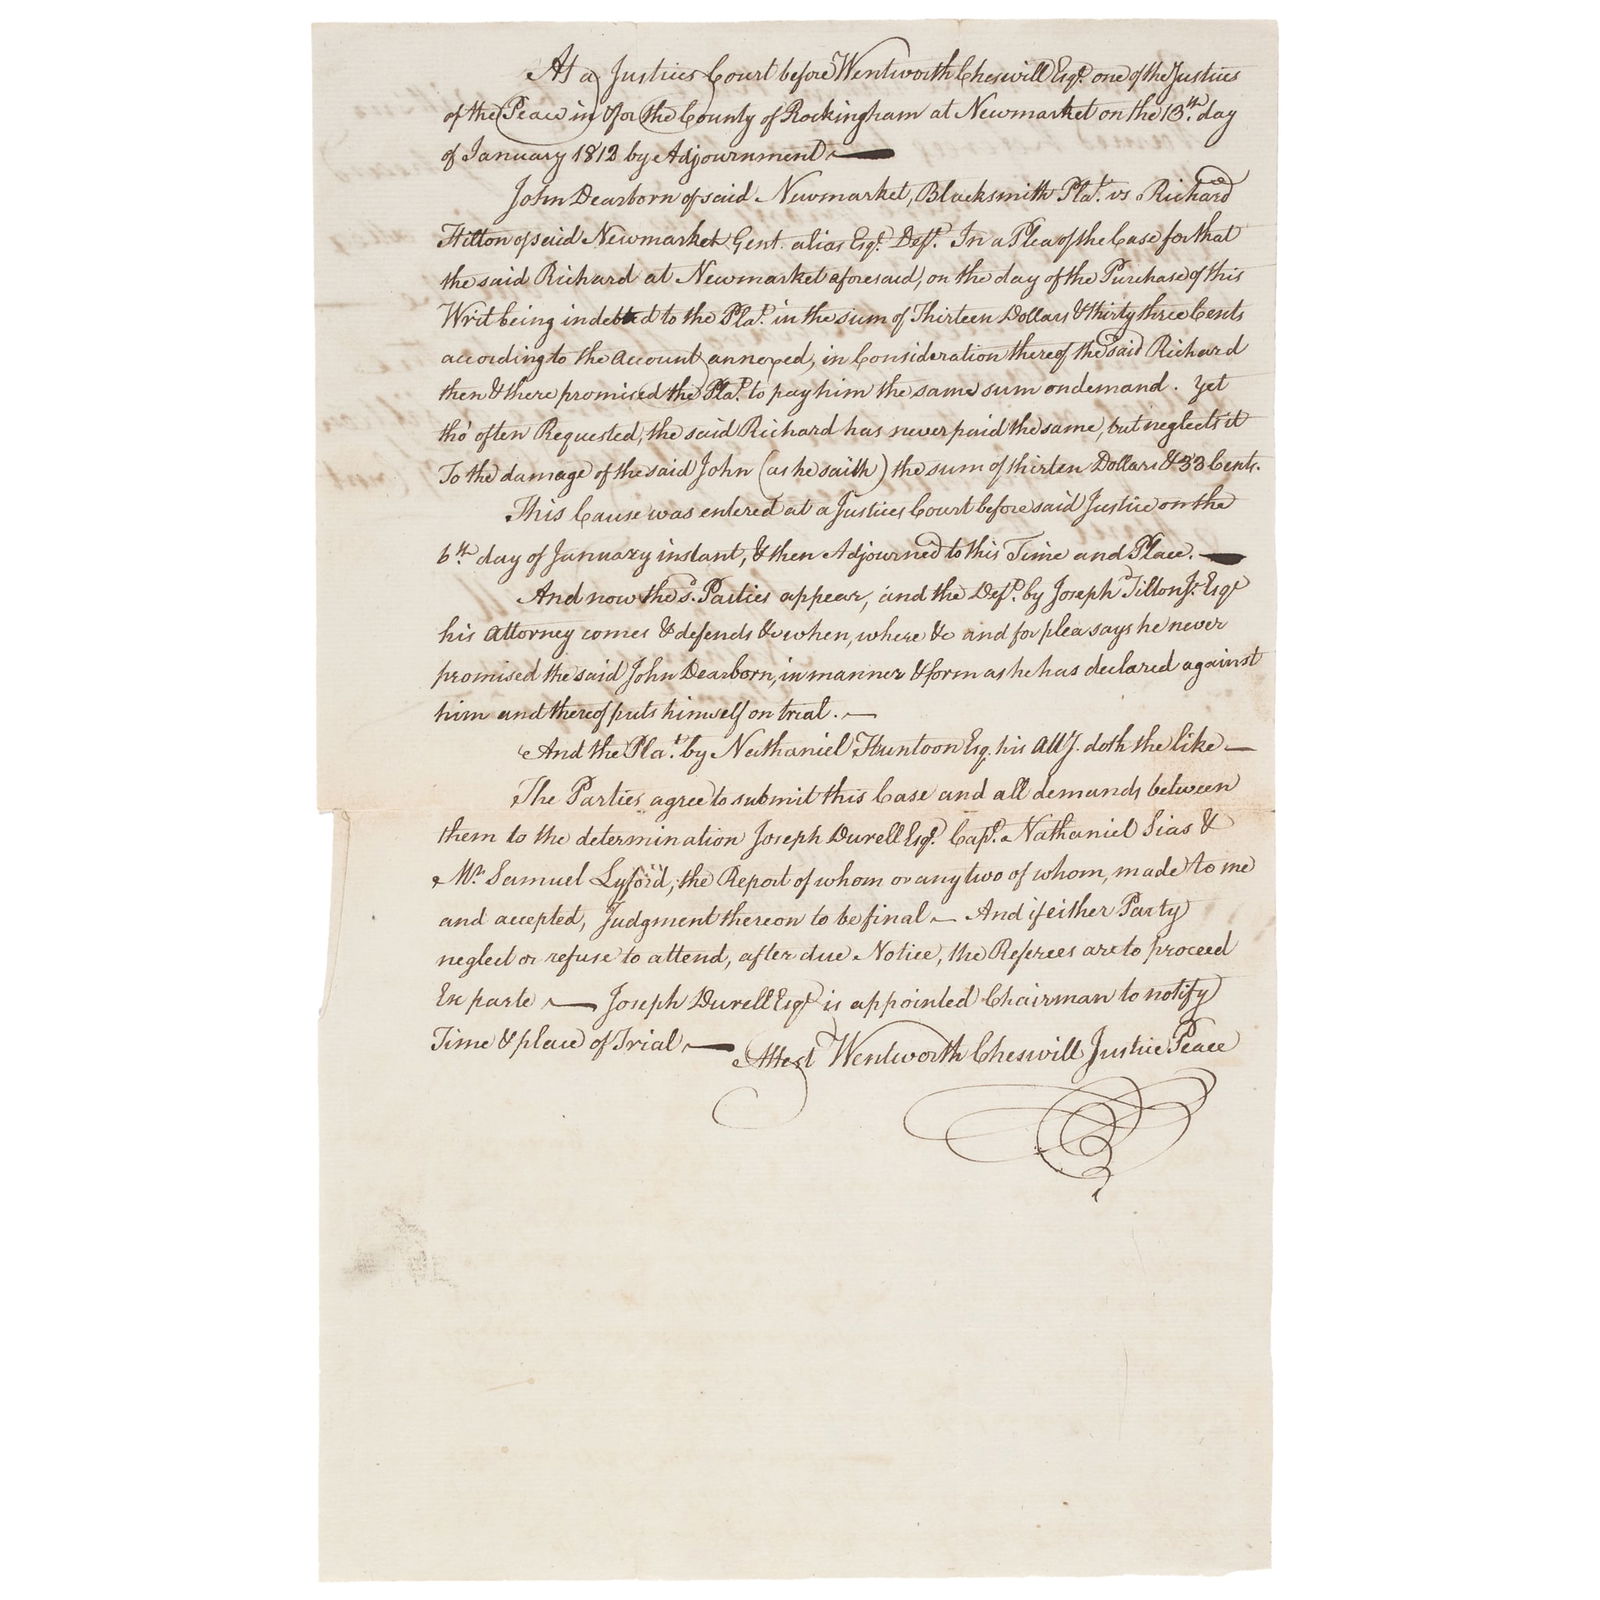 At a Justices Court before Wentworth Cheswill Esqr. one of the Justices
of the Peace in & for the County of Rockingham at Newmarket on the 13th. day
of January 1812 by Adjournment
John Dearborn of said Newmarket, Blacksmith Plat. vs Richard
Hilton of said Newmarket Gent. alias Esqr. Deft. In a Plea of the Case for that
the said Richard at Newmarket aforesaid, on the day of the Purchase of this
Writ being indebted to the Plat. in the sum of Thirteen Dollars & thirty three Cents
according to the account annexed, in Consideration thereof the said Richard
then & there promised the Plat. to pay him the same sum on demand. Yet
tho' often Requested, the said Richard has never paid the same, but neglects it
To the damage of the said John (as he saith) the sum of thirten Dollars & 33 Cents.
This Cause was entered at a Justices Court before said Justice on the
6th. day of January instant, & then Adjourned to this Time and Place.
And now the sd. Parties appear, and the Deft. by Joseph Tilton Jr. Esqr
his Attorney comes & defends &c when, where &c and for plea says he never
promised the said John Dearborn, in manner & form as he has declared against
him and thereof puts himself on trial.
And the Plat. by Nathaniel Huntoon Esq. his Atty. doth the like
The Parties agree to submit this Case and all demands between
them to the determination Joseph Durell Esqr. Capt. Nathaniel Sias &
Mr. Samuel Lyford, the Report of whom or any two of whom, made to me
and accepted, Judgment thereon to be final — And if either Party
neglect or refuse to attend, after due Notice, the Referees are to proceed
Ex parte — Joseph Durell Esqr. is appointed Chairman to notify
Time & place of Trial
Attest Wentworth Cheswill Justice Peace